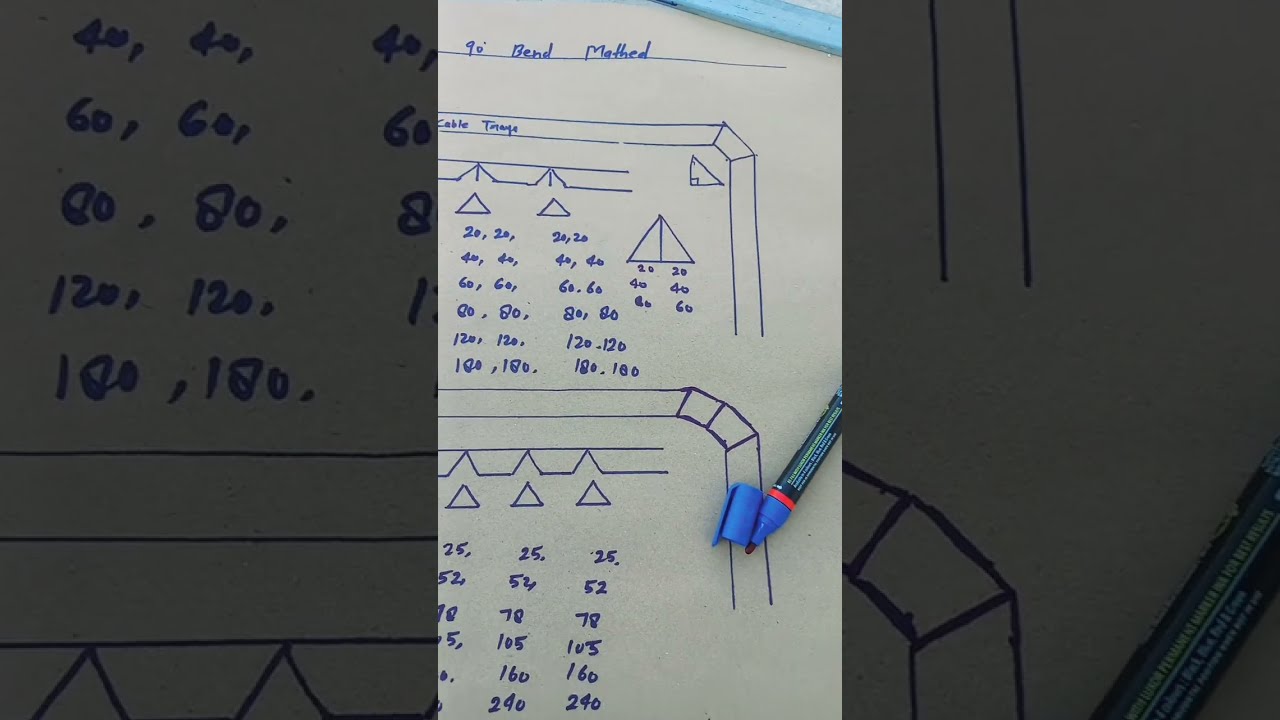 90° Bend Mathed
Cable Traye
20, 20, 20,20
40, 40, 40, 40
60, 60, 60.60
80, 80, 80, 80
120, 120. 120.120
180,180. 180.180
20 20
40 40
80 60
25, 25. 25.
52, 52, 52
78 78 78
105 105
160 160
240 240
40, 40, 40,
60, 60, 60
80, 80,
120, 120,
180,180.